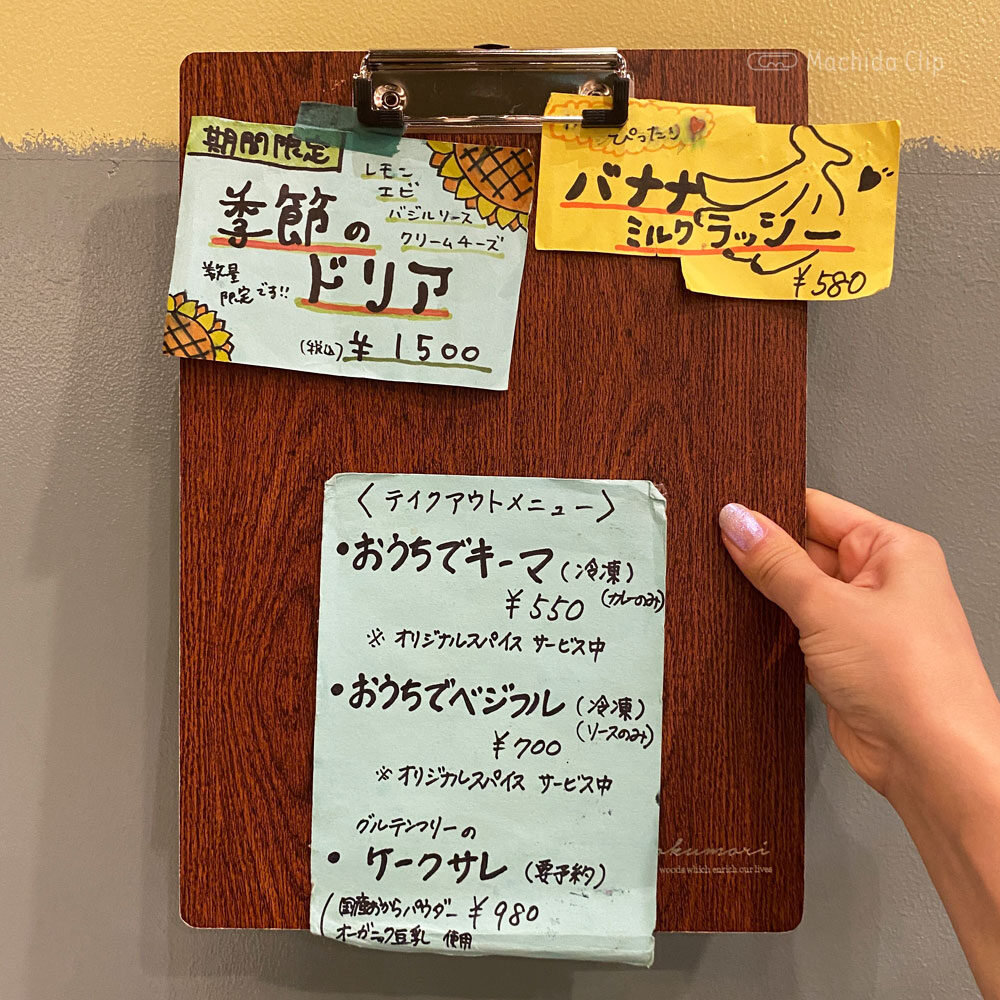 Machida Clip
期間限定
レモン
エビ
バジルソース
クリームチーズ
季節の
ドリア
数量
限定です!!
(税込)¥1500
ぴったり
バナナ
ミルクラッシー
¥580
〈テイクアウトメニュー〉
・おうちでキーマ(冷凍)
(カレーのみ)
¥550
※オリジナルスパイス サービス中
・おうちでベジフル(冷凍)
(ソースのみ)
¥700
※オリジナルスパイス サービス中
グルテンフリーの
・ケークサレ(要予約)
(国産おからパウダー ¥980
オーガニック豆乳 使用
okumori
woods which enrich our lives